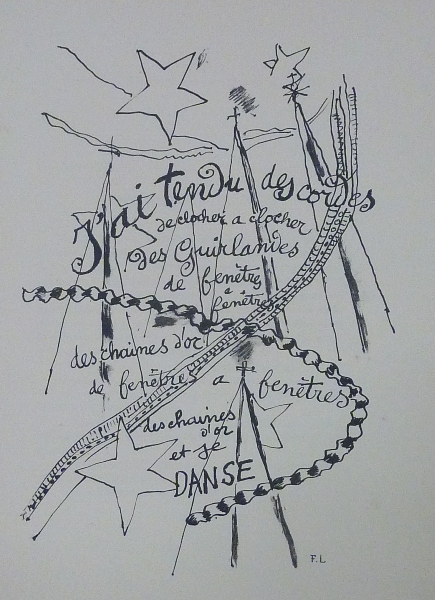 J'ai tendu des cordes
de clocher a clocher
des Guirlandes
de fenêtres
a
fenêtres
des chaînes d'or
de fenêtres a fenêtres
des chaines
d'or
et je
DANSE
F.L